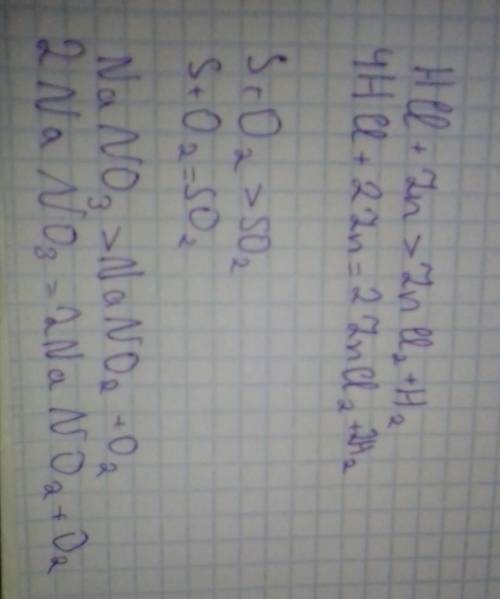 HCl + Zn > ZnCl₂ + H₂
4HCl + 2Zn = 2ZnCl₂ + 2H₂
S + O₂ > SO₂
S + O₂ = SO₂
NaNO₃ > NaNO₂ + O₂
2NaNO₃ = 2NaNO₂ + O₂